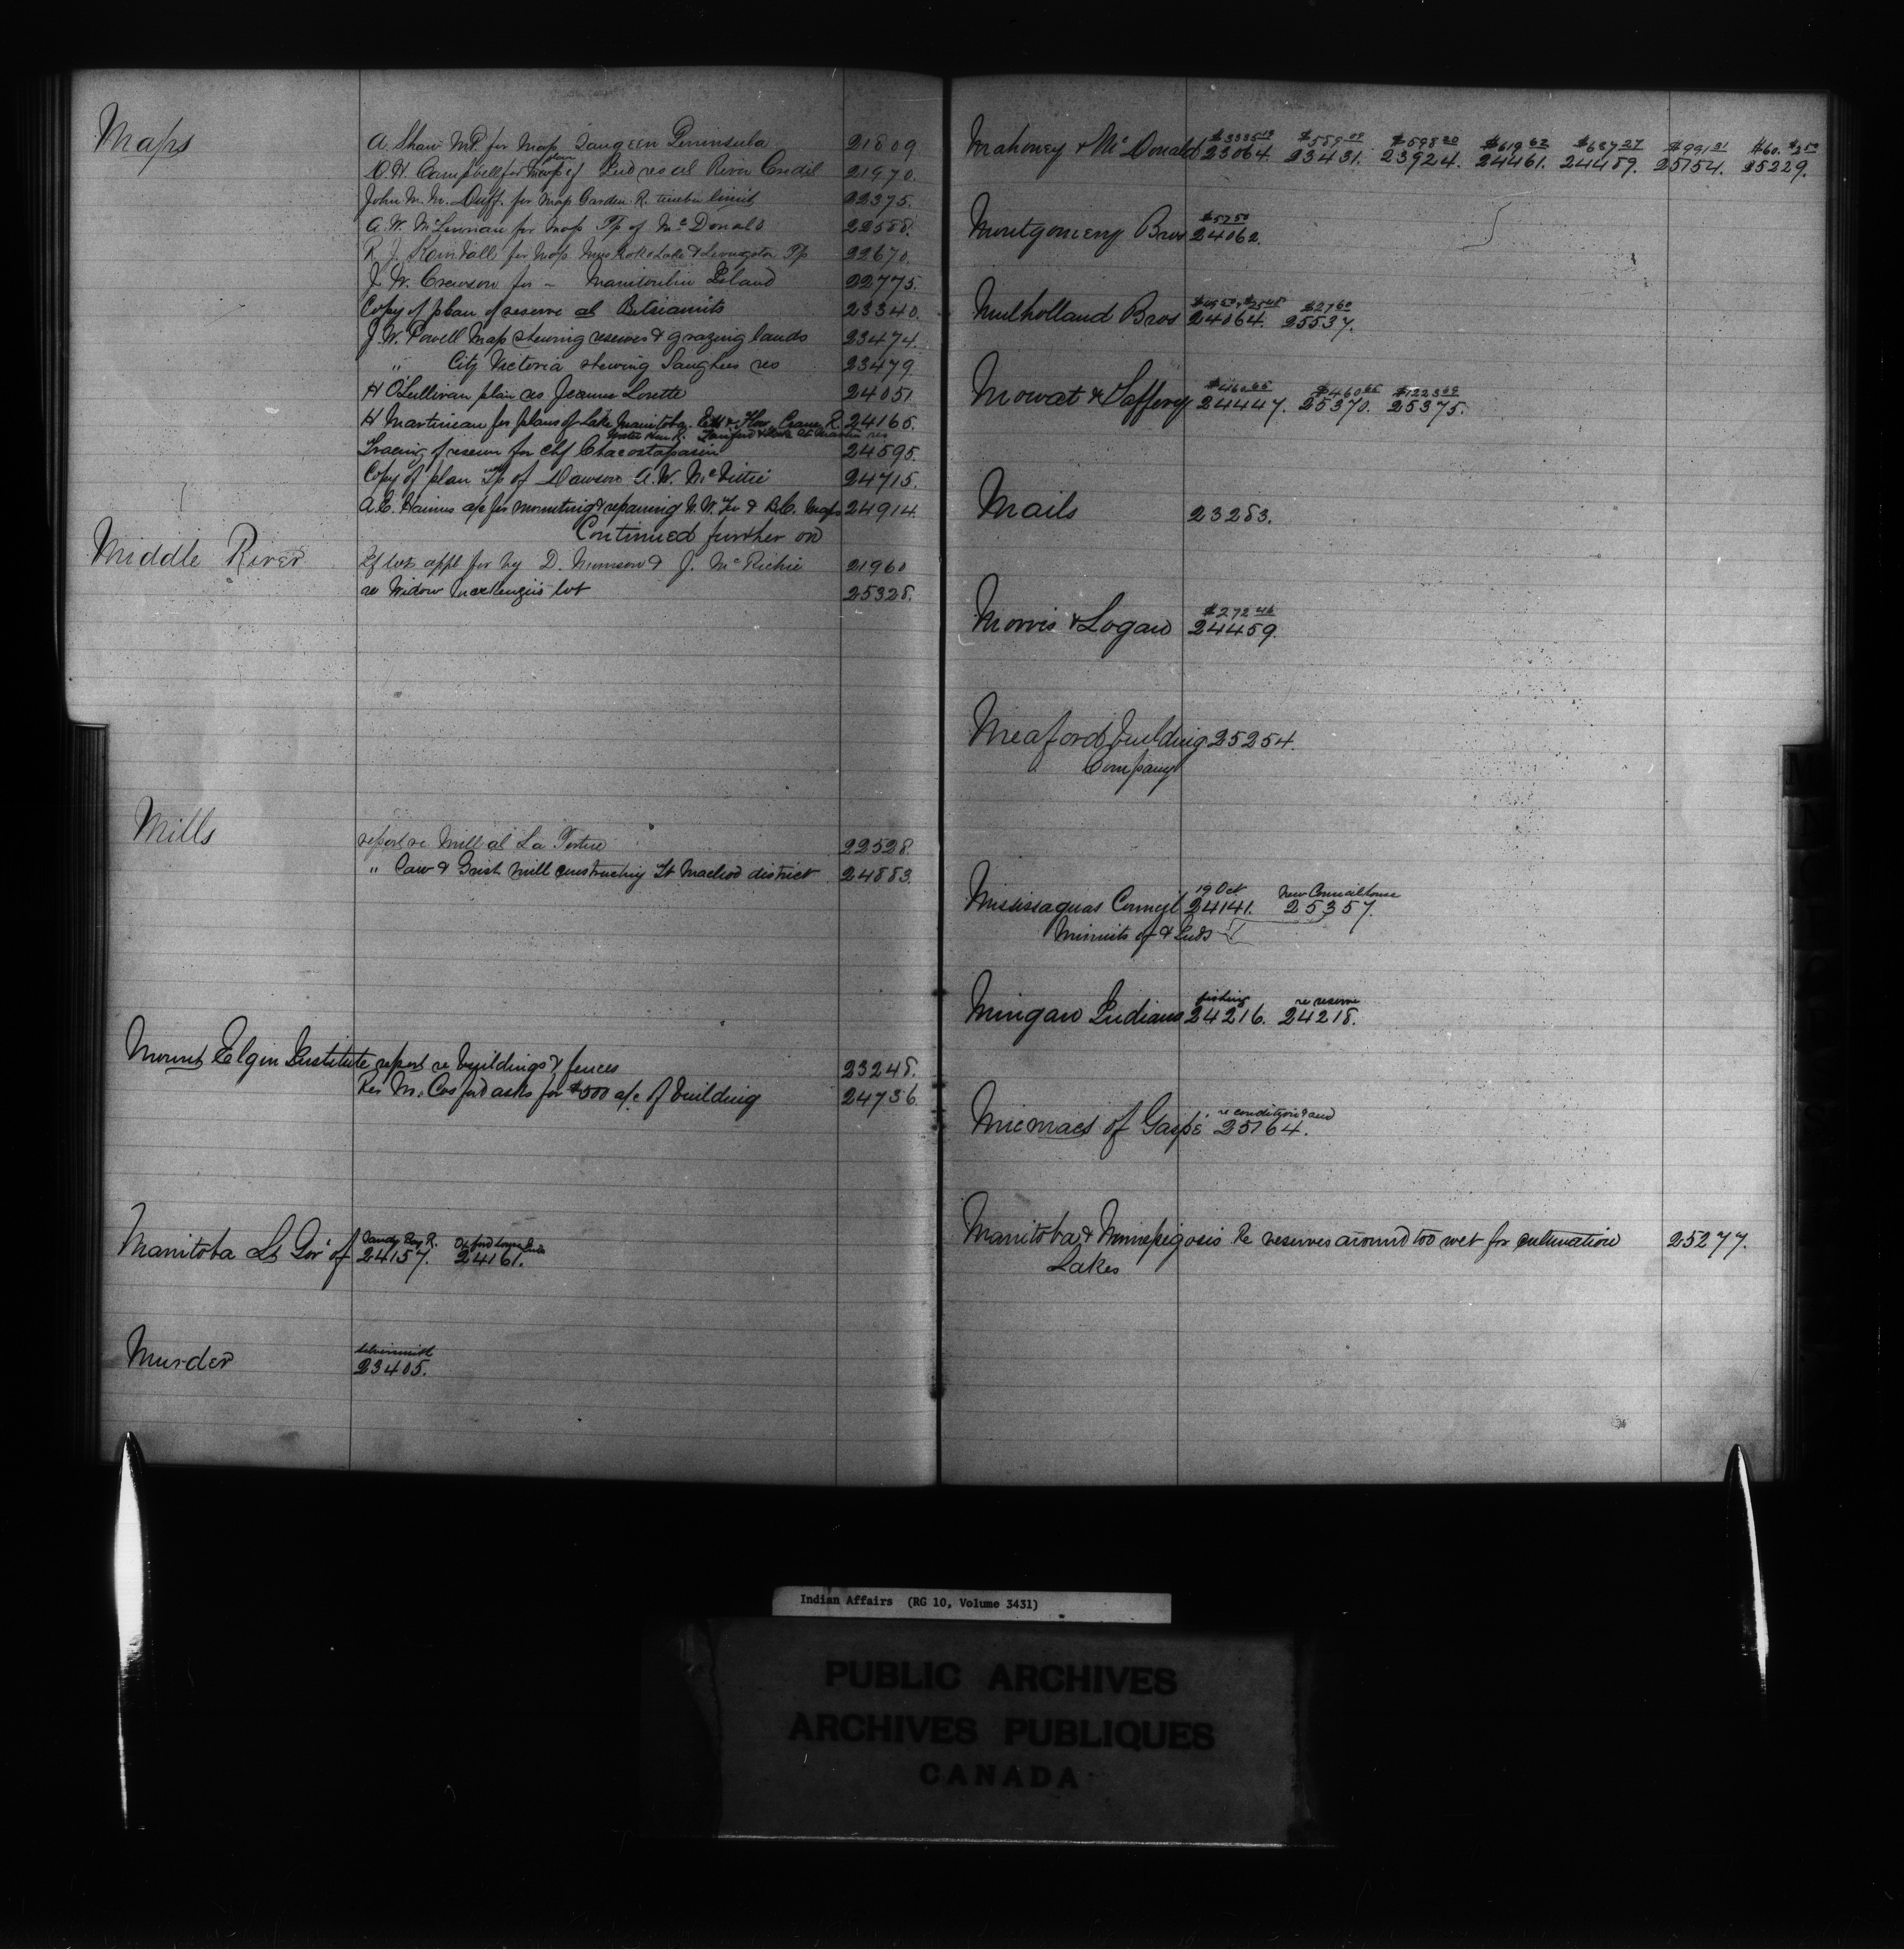 Maps
A. Shaw M.P. for Map Saugeen Peninsula 21809
D.H. Campbell for Map of Ind res at River Credit 21970.
plan
John M. M. Duff. for Map Garden R. timber limit 22375.
A.W. McLennan for Map Tp of McDonald 22588.
R. J. for Map Lake & Livingston Tp 22670.
J. W. Crewson for - Manitoulin Island 22775.
Copy of plan of reserve at Betsiamits 23340.
J. W. Powell Map shewing reserves & grazing lands 23474.
" City Victoria shewing Songhees res 23479
H O'Sullivan plan res Jeanne Lorette 24051
H Martineau for plans of Lake Manitoba. Ebb & Flow. Crane R. 24165.
Water Hen R. res
Tracing of reserve for Chf Chacastapasin 24595.
Copy of plan Tp of Dawson A.W. McVittie 24715.
A.C. Haines a/c for mounting & repairing N.W. Ter & B.C. Maps 24914.
Continued further on
Middle River
lot appl for by D. Munson & J. McRichie 21960
re Widow McKenzie's lot 25328.
Mills
report re Mill at La Tortue 22528
" Saw & Grist Mill constructing Ft Macleod district 24883.
Mount Elgin Institute report re buildings & fences 23248.
Rev M. Cosford asks for $500 a/c of building 24736
Manitoba Lt Govr of
Sandy Bay R.
24157. 24161.
Murder
23405.
Mahoney & McDonald
$589 09 $598 20 $619 62 $687 27 $991 21 $60.
23064. 23431. 23924. 24461. 24489. 25154. 25229.
Montgomery Bros
$57 50
24062.
Mulholland Bros
$27 60
24064. 25537.
Mowat & Saffery
$460 65 $460 65 $1223 69
24447. 25370. 25375.
Mails 23283.
Morris & Logan
$272 46
24459.
Meaford building 25254.
Company
Mississaguas Council
19 Oct New Council house
24141. 25357.
Minuits of & Inds
Mingan Indians
fishing re reserve
24216. 24218.
Micmacs of Gaspé
re condition & and
25164.
Manitoba & Winnipegosis Re reserves around too wet for cultivation 25277.
Lakes
Indian Affairs (RG 10, Volume 3431)
PUBLIC ARCHIVES
ARCHIVES PUBLIQUES
CANADA